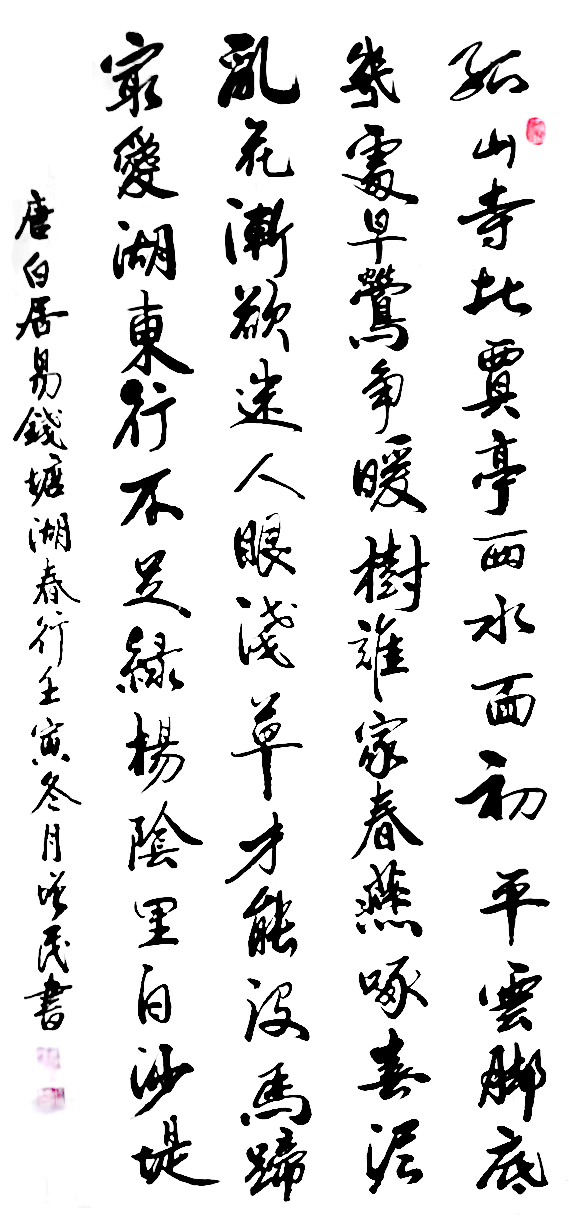 孤山寺北賈亭西水面初平雲腳底
幾處早鶯争暖樹誰家春燕啄春泥
亂花漸欲迷人眼淺草才能没馬蹄
寂愛湖東行不足緑楊陰里白沙堤
唐白居易錢塘湖春行壬寅冬月增民書